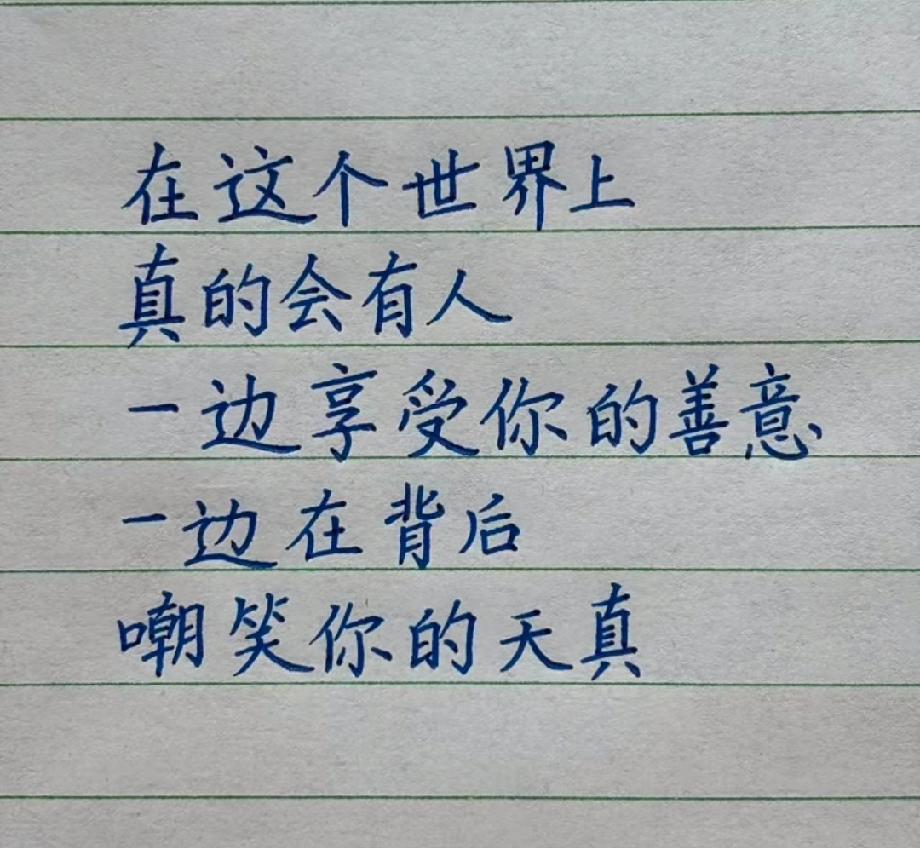 在这个世界上
真的会有人
一边享受你的善意
一边在背后
嘲笑你的天真